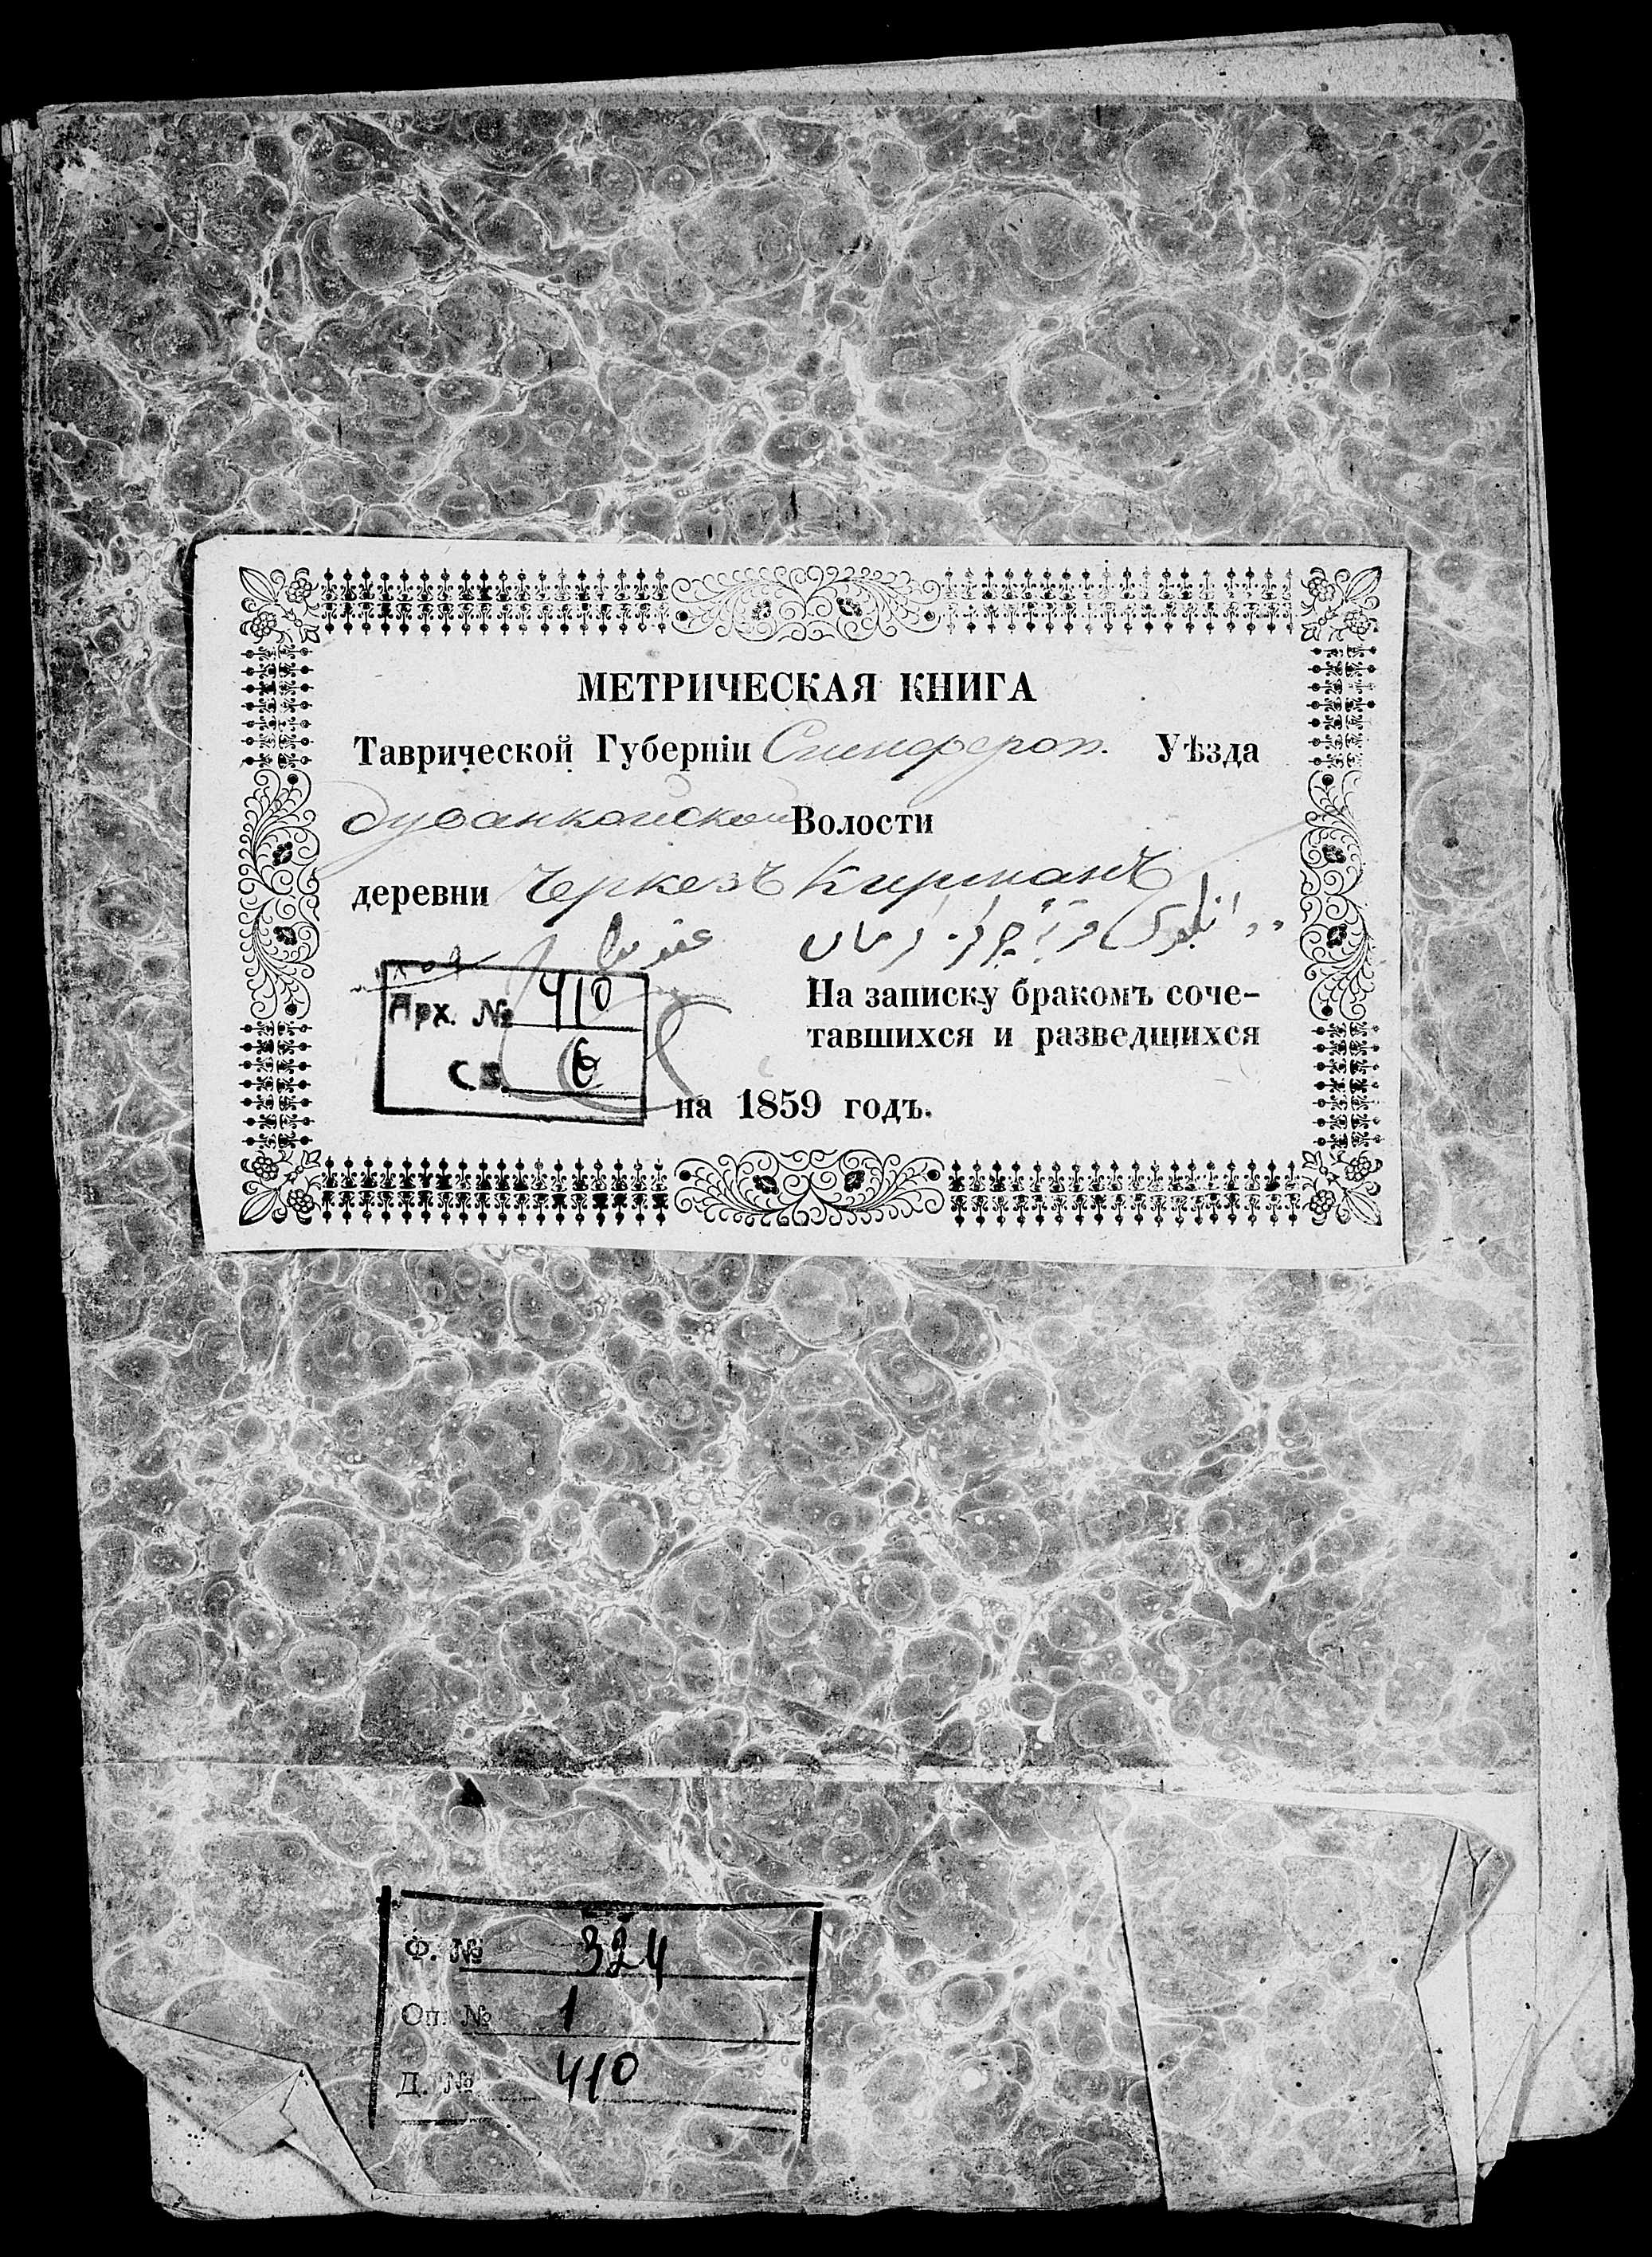 МЕТРИЧЕСКАЯ КНИГА
Таврической Губерніи Симфероп. Уѣзда
дуванкойской Волости
деревни Черкезъ Кирманъ
Арх. № 410
Св. 6
На записку бракомъ соче-
тавшихся и разведшихся
на 1859 годъ.
Ф. № 324
Оп. № 1
Д. № 410